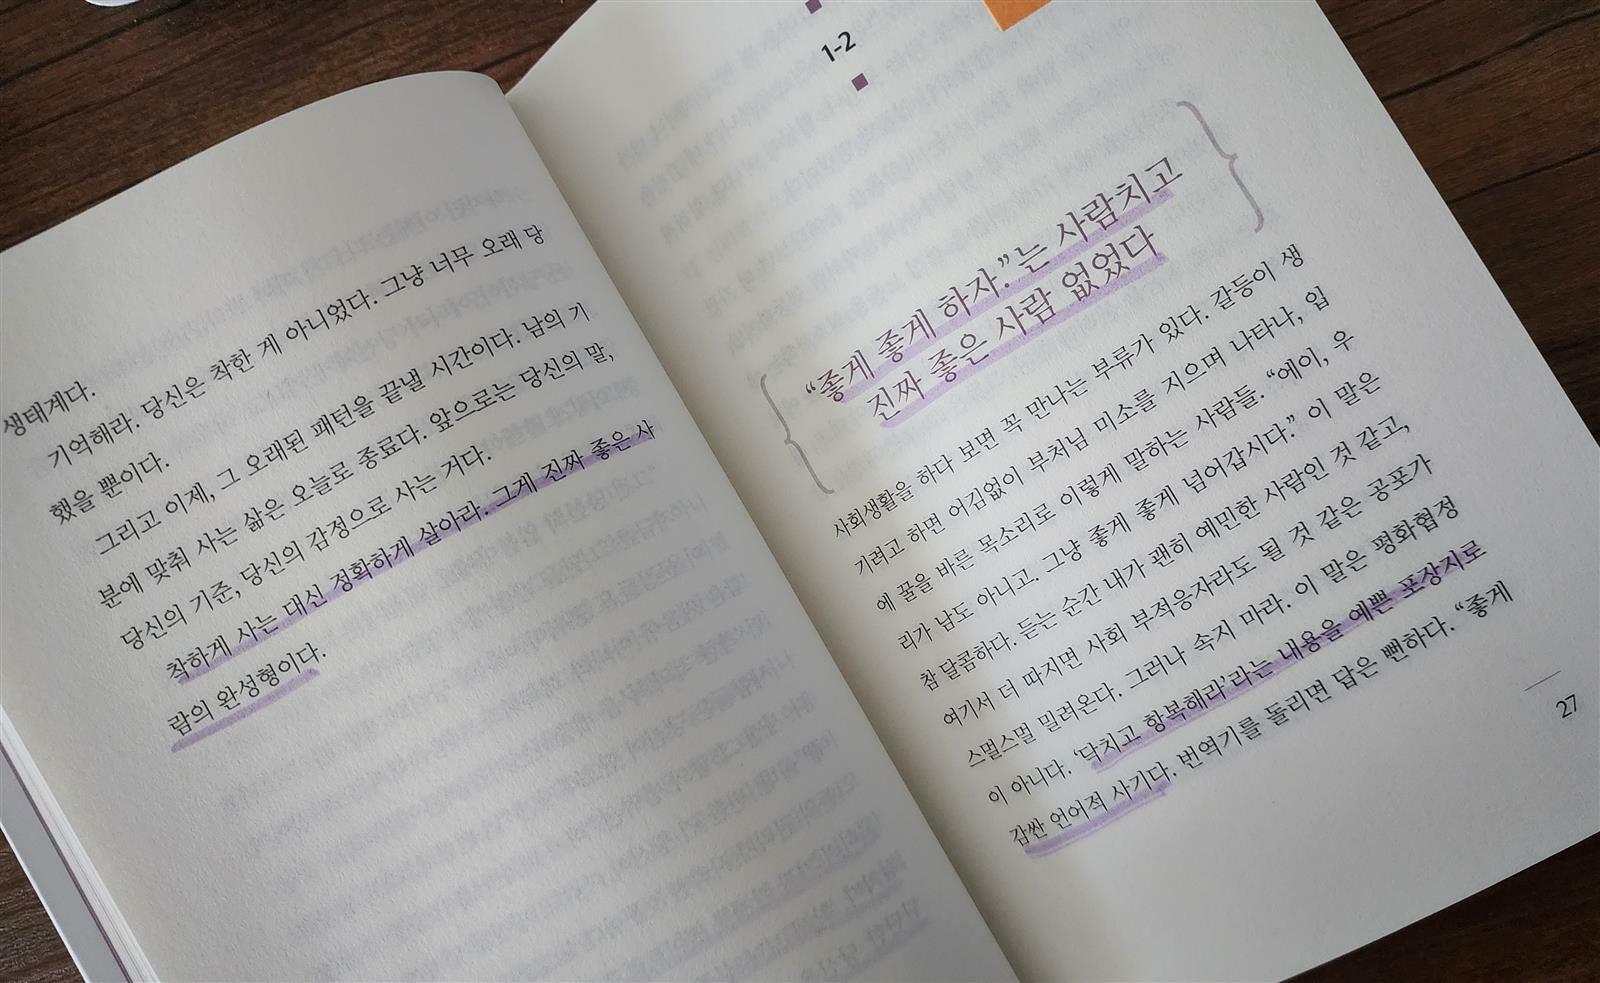 생태계다.
기억해라. 당신은 착한 게 아니었다. 그냥 너무 오래 당
했을 뿐이다.
그리고 이제, 그 오래된 패턴을 끝낼 시간이다. 남의 기
분에 맞춰 사는 삶은 오늘로 종료다. 앞으로는 당신의 말,
당신의 기준, 당신의 감정으로 사는 거다.
착하게 사는 대신 정확하게 살아라. 그게 진짜 좋은 사
람의 완성형이다.
1-2
“좋게 좋게 하자.”는 사람치고
진짜 좋은 사람 없었다
사회생활을 하다 보면 꼭 만나는 부류가 있다. 갈등이 생
기려고 하면 어김없이 부처님 미소를 지으며 나타나, 입
에 꿀을 바른 목소리로 이렇게 말하는 사람들. “에이, 우
리가 남도 아니고. 그냥 좋게 좋게 넘어갑시다.” 이 말은
참 달콤하다. 듣는 순간 내가 괜히 예민한 사람인 것 같고,
여기서 더 따지면 사회 부적응자라도 될 것 같은 공포가
스멀스멀 밀려온다. 그러나 속지 마라. 이 말은 평화협정
이 아니다. ‘닥치고 항복해라’라는 내용을 예쁜 포장지로
감싼 언어적 사기다. 번역기를 돌리면 답은 뻔하다. “좋게
27